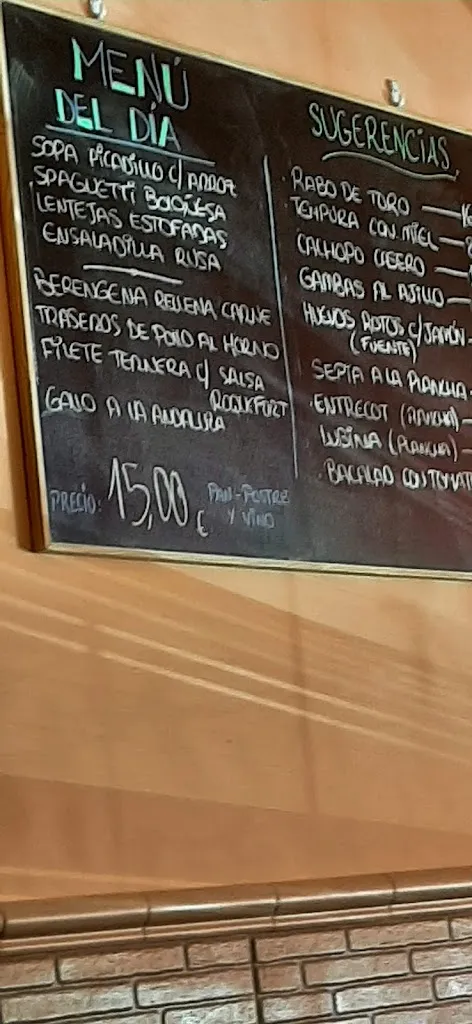 MENÚ
DEL DÍA
SOPA PICADILLO C/ ARROZ
SPAGUETTI BOLOÑESA
LENTEJAS ESTOFADAS
ENSALADILLA RUSA
BERENGENA RELLENA CARNE
TRASEROS DE POLLO AL HORNO
FILETE TERNERA C/ SALSA
ROQUEFORT
GALLO A LA ANDALUZA
PRECIO: 15,00 €
PAN-POSTRE
Y VINO
SUGERENCIAS
RABO DE TORO
TEMPURA CON MIEL
CACHOPO
GAMBAS AL AJILLO
HUEVOS ROTOS C/JAMÓN
(FUENTE)
SEPIA A LA PLANCHA
ENTRECOT (PLANCHA)
LUBINA (PLANCHA)
BACALAO CON TOMAT